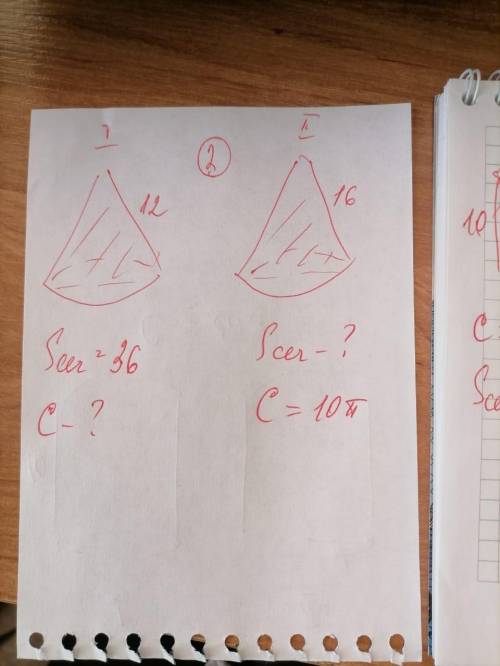 I
②
II
12
16
Sсег = 36
Sсег - ?
C - ?
C = 10π
10
C
Sсе